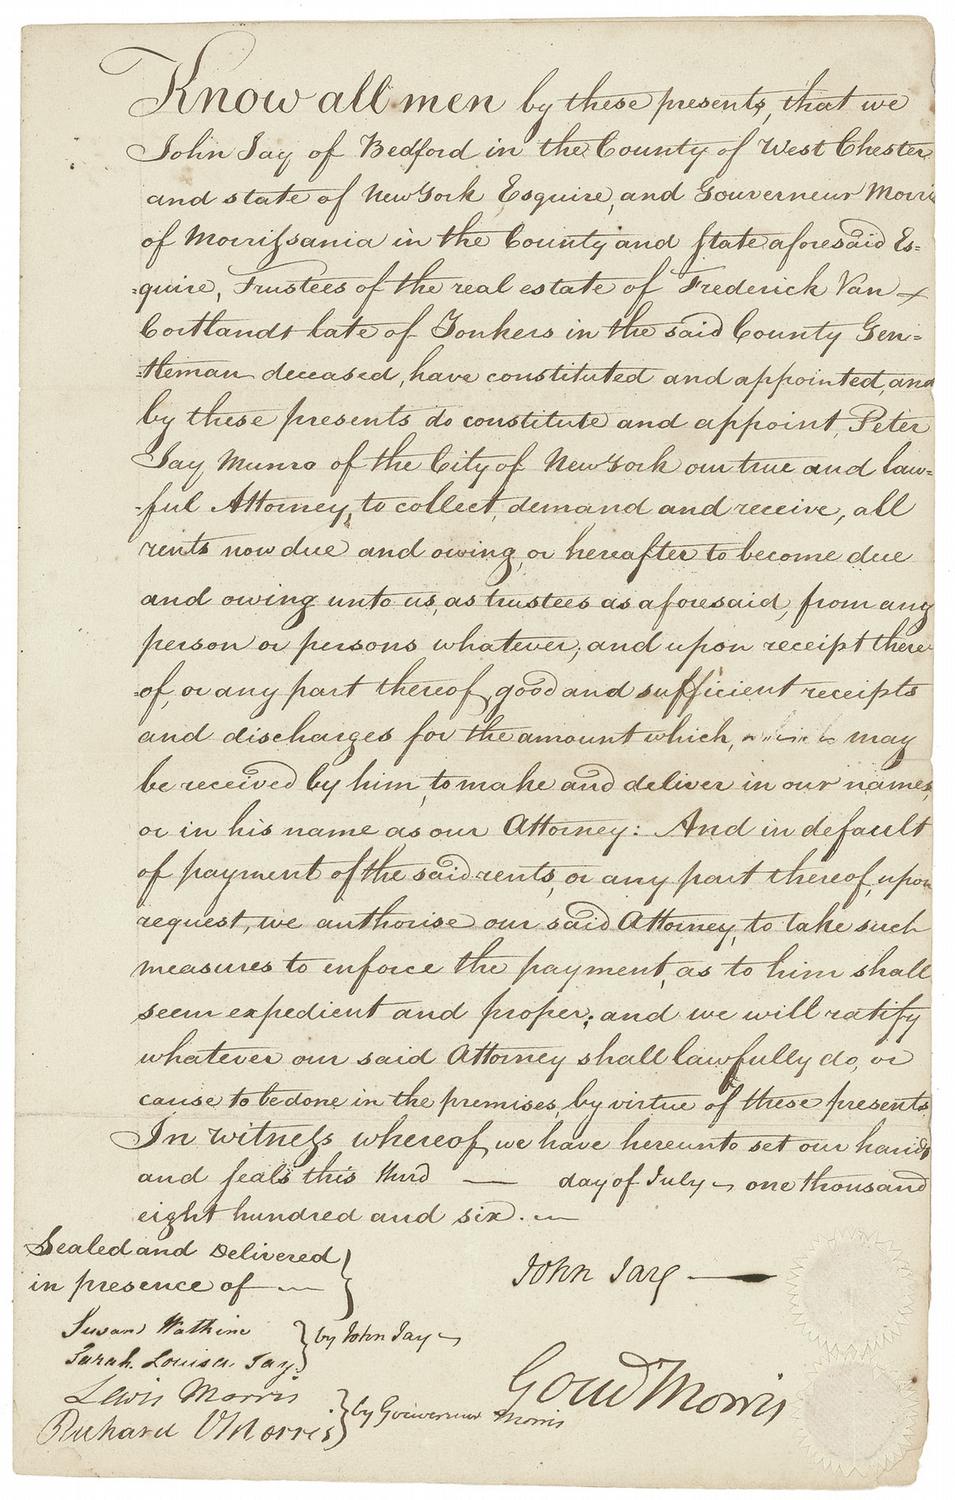 Know all men by these presents, that we
John Jay of Bedford in the County of West Chester
and state of New York Esquire, and Gouverneur Morris
of Morrissania in the County and state aforesaid Es=
=quire, Trustees of the real estate of Frederick Van
Cortlandt late of Yonkers in the said County Gen=
=tleman deceased, have constituted and appointed, and
by these presents do constitute and appoint, Peter
Jay Munro of the City of New York our true and law=
=ful Attorney, to collect, demand and receive, all
rents now due and owing, or hereafter to become due
and owing unto us, as trustees as aforesaid, from any
person or persons whatever; and upon receipt there
=of, or any part thereof, good and sufficient receipts
and discharges for the amount which, may
be received by him, to make and deliver in our names,
or in his name as our Attorney: And in default
of payment of the said rents, or any part thereof, upon
request, we authorise our said Attorney, to take such
measures to enforce the payment, as to him shall
seem expedient and proper; and we will ratify
whatever our said Attorney shall lawfully do, or
cause to be done in the premises, by virtue of these presents.
In witness whereof, we have hereunto set our hands
and seals this third — day of July — one thousand
eight hundred and six. —
Sealed and Delivered
in presence of —
John Jay —
Susan Watkins
Sarah Louisa Jay
} by John Jay —
Lewis Morris
Richard V Morris
} by Gouverneur Morris
Gouv Morris